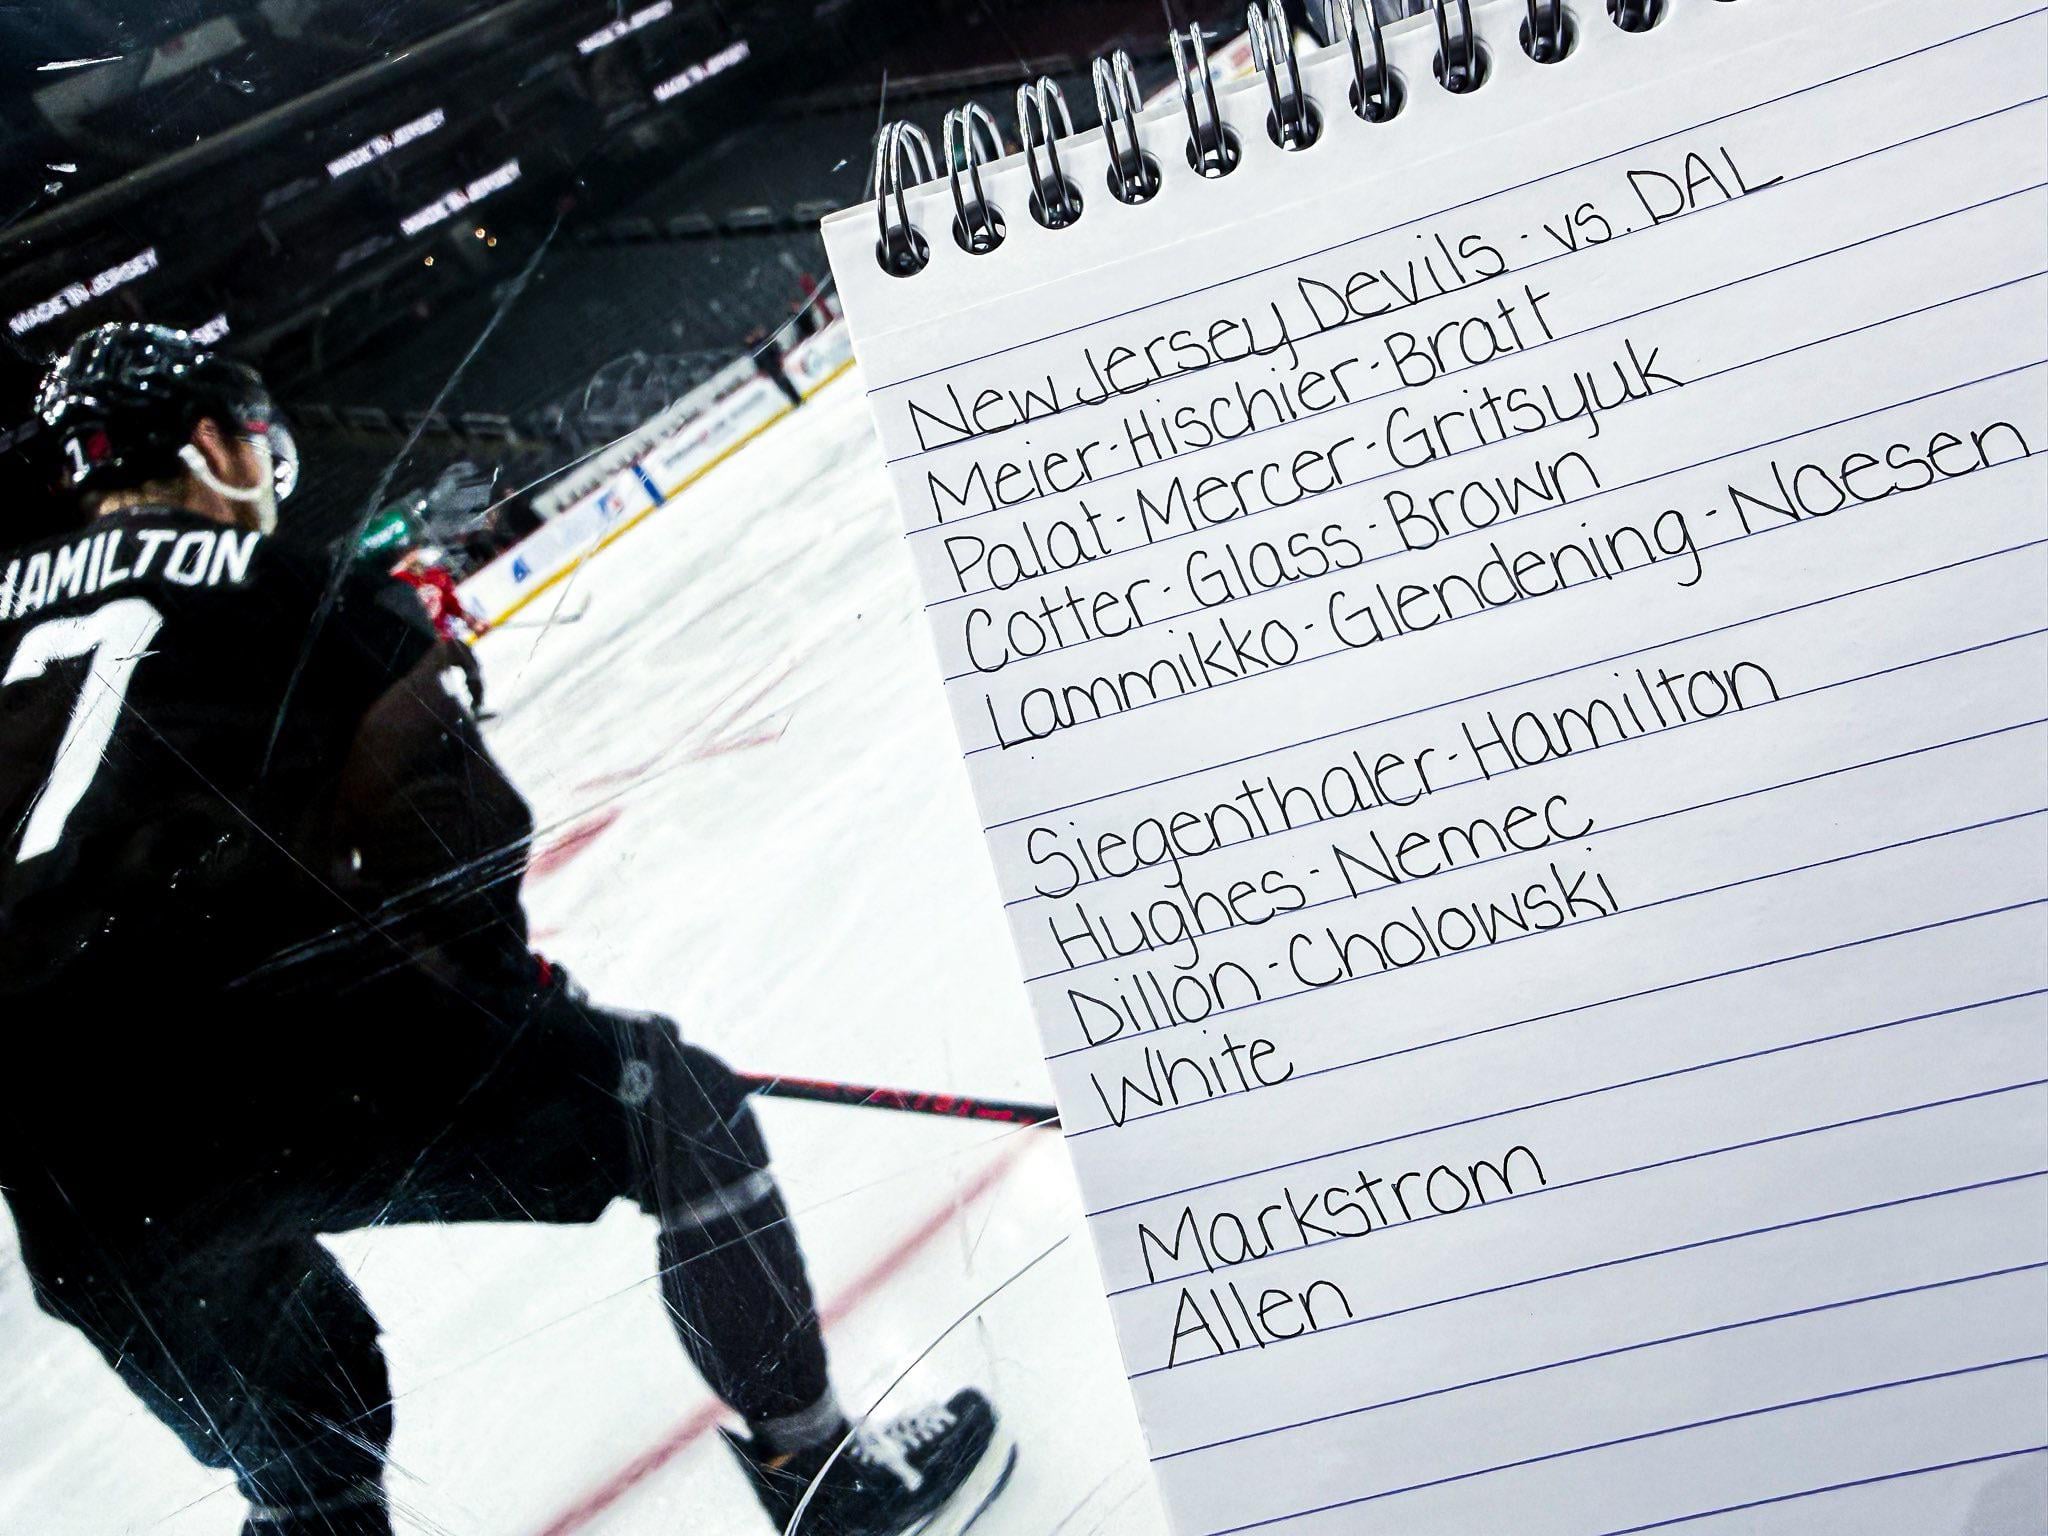 MADE IN JERSEY
MADE IN JERSEY
MADE IN JERSEY
MADE IN JERSEY
MADE IN JERSEY
JERSEY
1
HAMILTON
7
New Jersey Devils - vs. DAL
Meier - Hischier - Bratt
Palat - Mercer - Gritsyuk
Cotter - Glass - Brown
Lammikko - Glendening - Noesen
Siegenthaler - Hamilton
Hughes - Nemec
Dillon - Cholowski
White
Markstrom
Allen